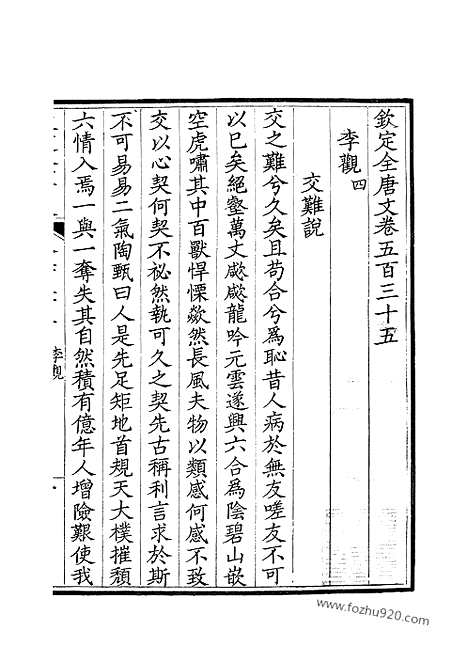 欽定全唐文卷五百三十五
李觀四
交難說
交之難兮久矣且苟合兮爲恥昔人病於無友嗟友不可
以已矣絕壑萬丈歘歘龍吟元雲遂興六合爲陰碧山嵌
空虎嘯其中百獸悍慄歘然長風夫物以類感何感不致
交以心契何契不祕然執可久之契先古稱利言求於斯
不可易易二氣陶甄曰人是先足矩地首規天大樸摧頹
六情入焉一與一奪失其自然積有億年人增險艱使我
李觀
www.fozhu920.com